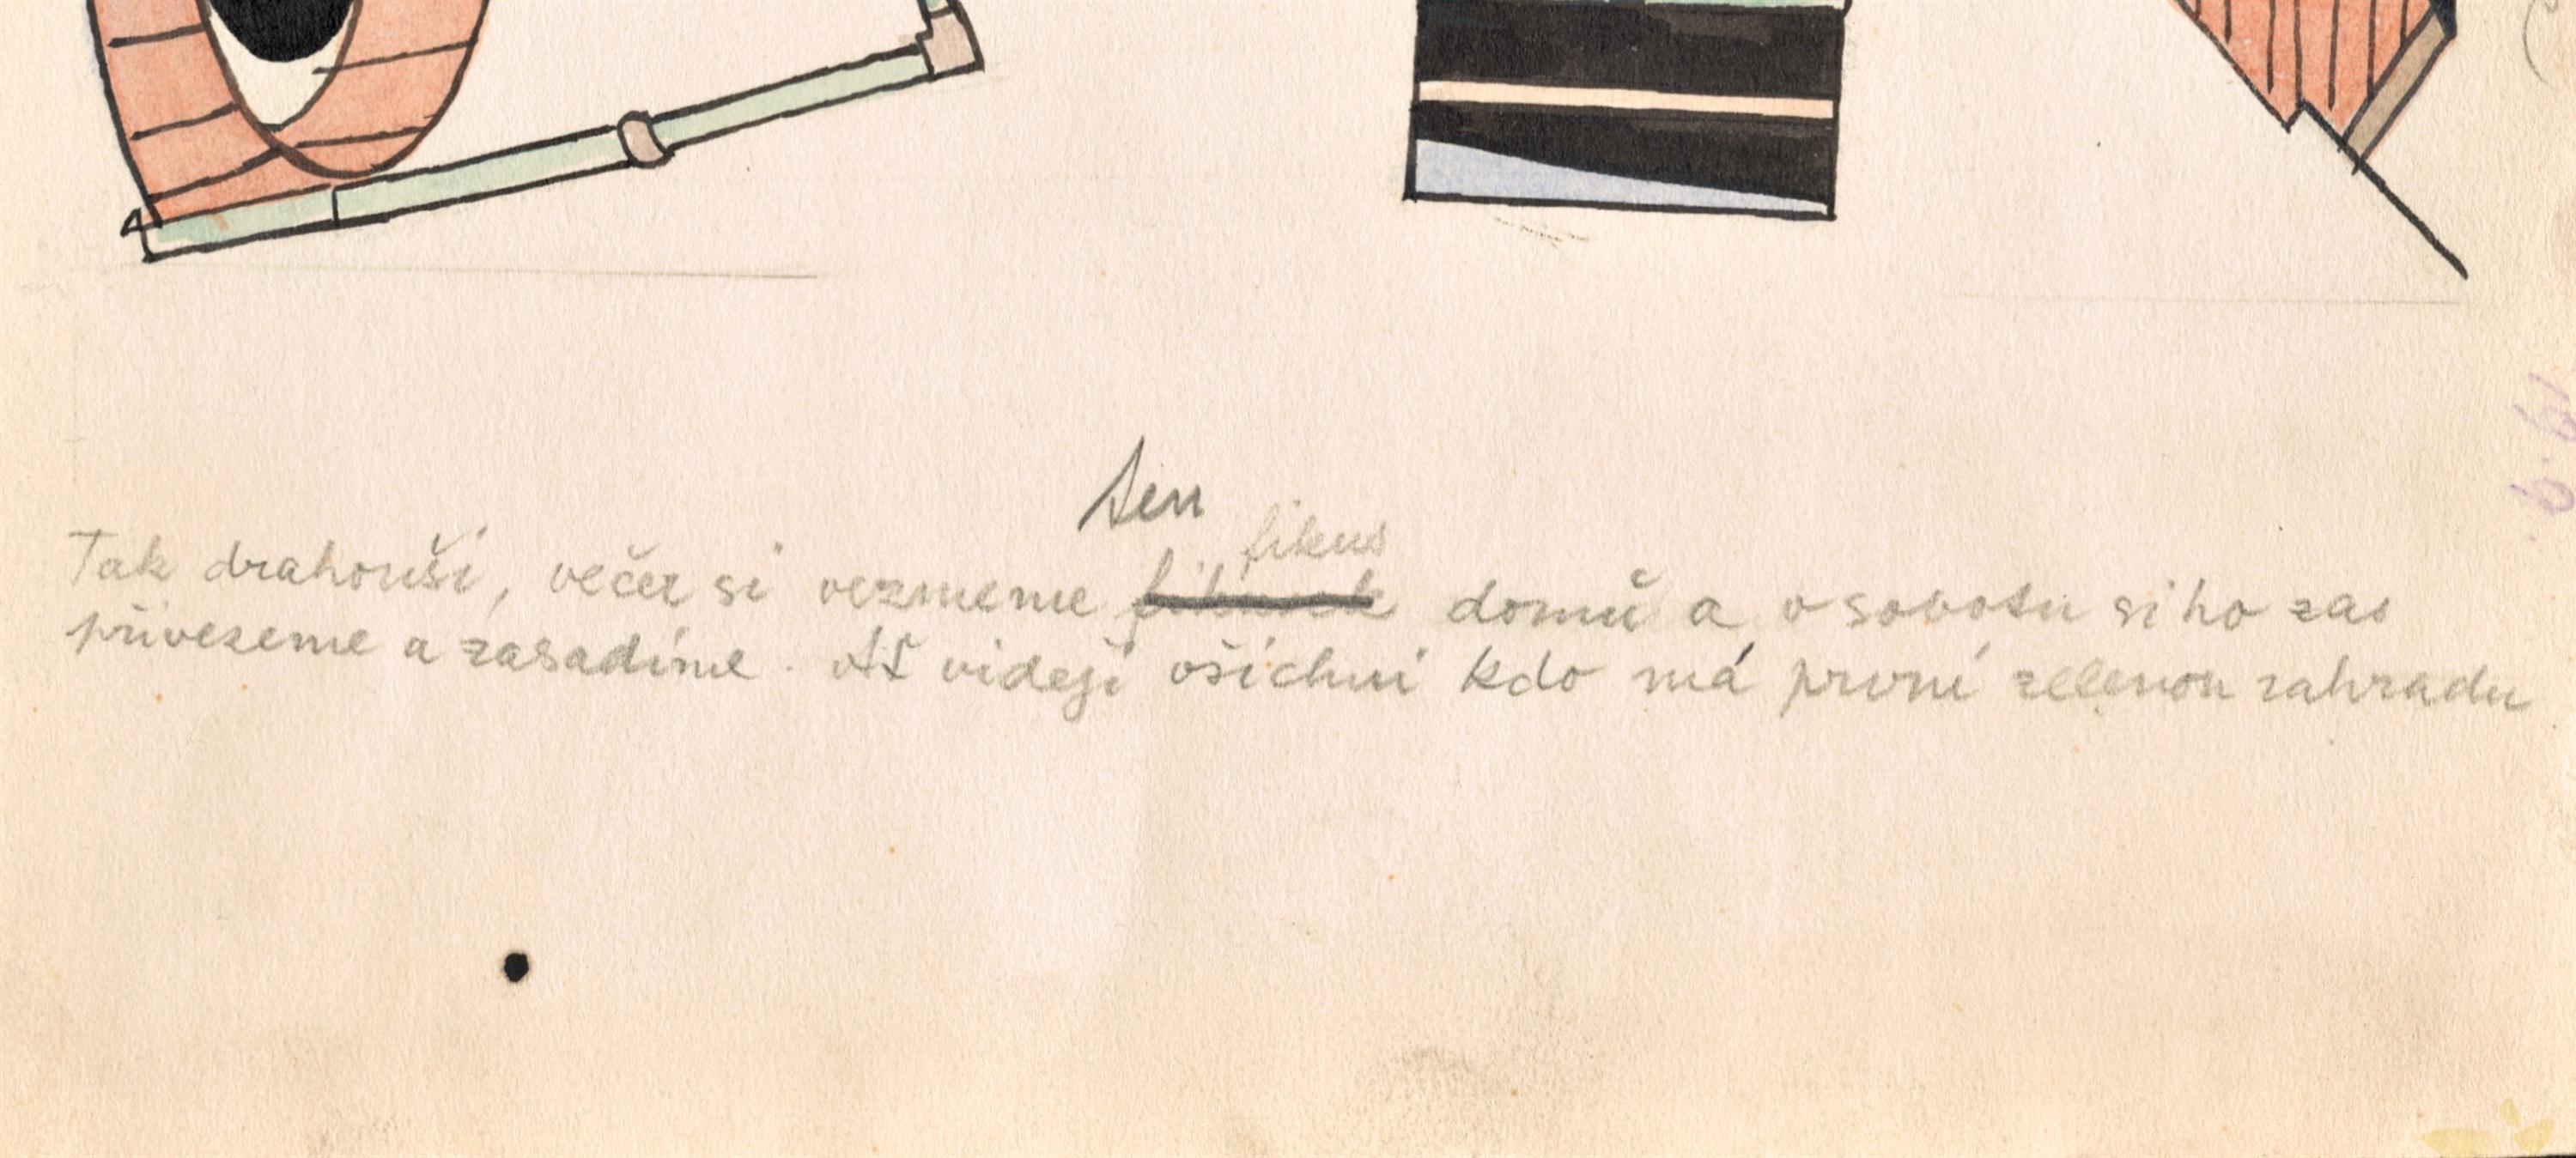 ten
fikus
Tak drahouši, večer si vezmeme fikusek domů a v sobotu si ho zas
přivezeme a zasadíme. Ať vidějí všichni kdo má první zelenou zahradu